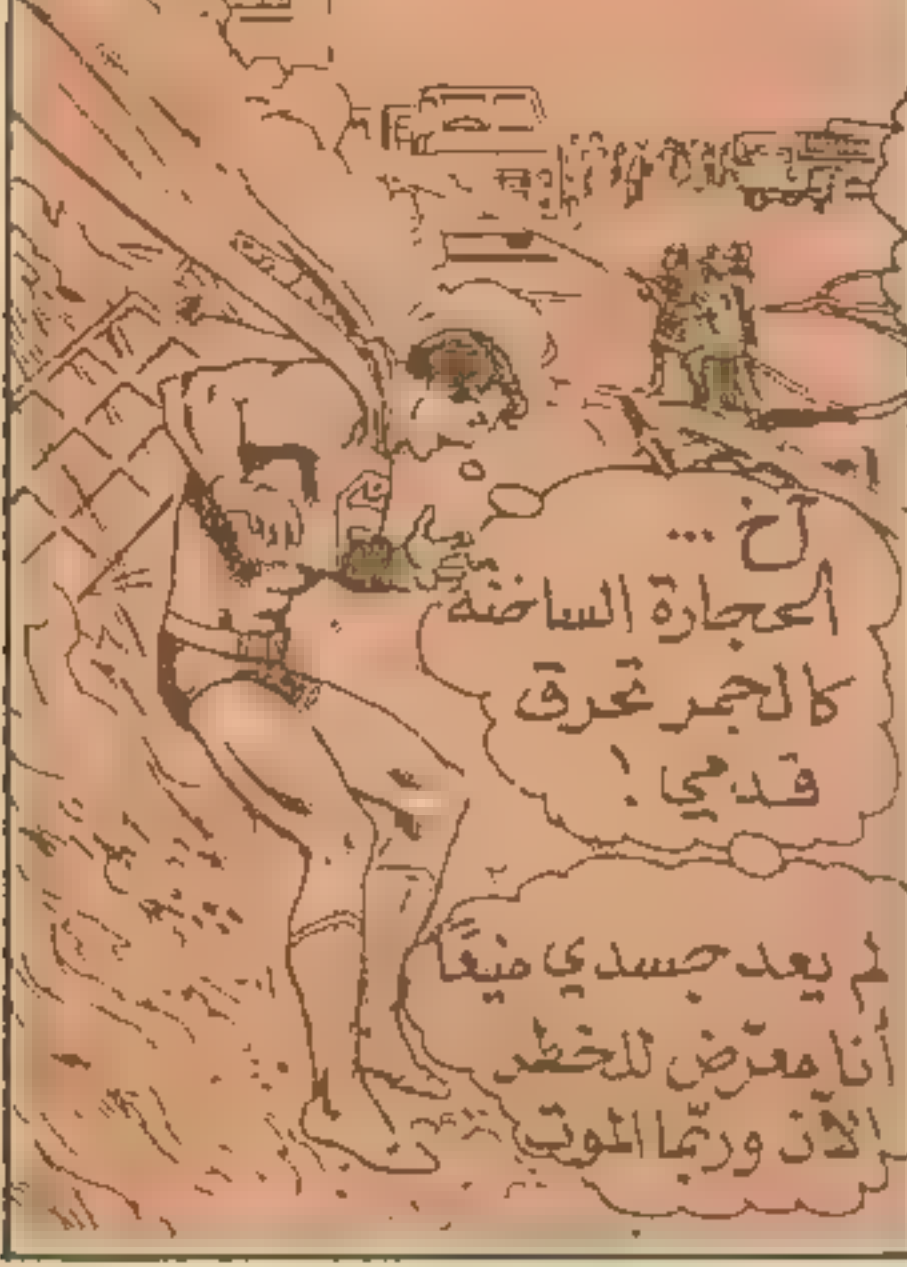 آخ ...
الحجارة الساخنة
كالجمر تحرق
قدمي !
لم يعد جسدي منيعًا
أنا معرّض للخطر
الآن وربّما الموت